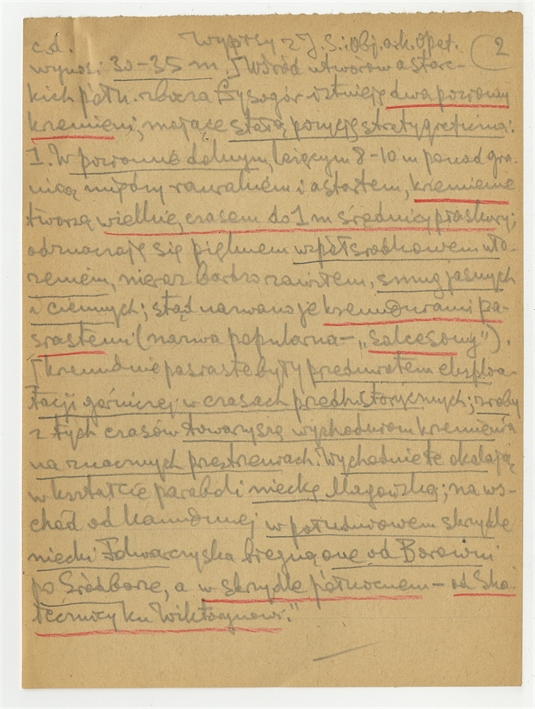 c.d. Wypisy z J. S. i Obj. ark. Opat. 2
wynosi 30-35 m. ⌈Wśród utworów astarc-
kich półn. zbocza Łysogór istnieją dwa poziomy
krzemieni, mające stałą pozycję stratygraficzną:
1. W poziomie dolnym, leżącym 8-10 m ponad gra-
nicą między raurakiem i astartem, krzemienie
tworzą wielkie, czasem do 1 m średnicy płaskury;
odznaczają się pięknem współśrodkowem uło-
żeniem, nieraz bardzo zawiłem, smug jasnych
i ciemnych; stąd nazwano je krzemieniami pa-
srastemi (nazwa popularna - „salcesony").
⌈Krzemienie pasraste były przedmiotem eksploa-
tacji górniczej w czasach przedhistorycznych; zroby
z tych czasów towarzyszą wychodniom krzemienia
na znacznych przestrzeniach. Wychodnie te okalają
w kształcie paraboli nieckę Magowską; na ws-
chód od Kamiennej w południowem skrzydle
niecki Folwarczyska biegną one od Borowni
po Śródborze, a w skrzydle północnem - od Ska-
łecznicy ku Wiktorynowi."